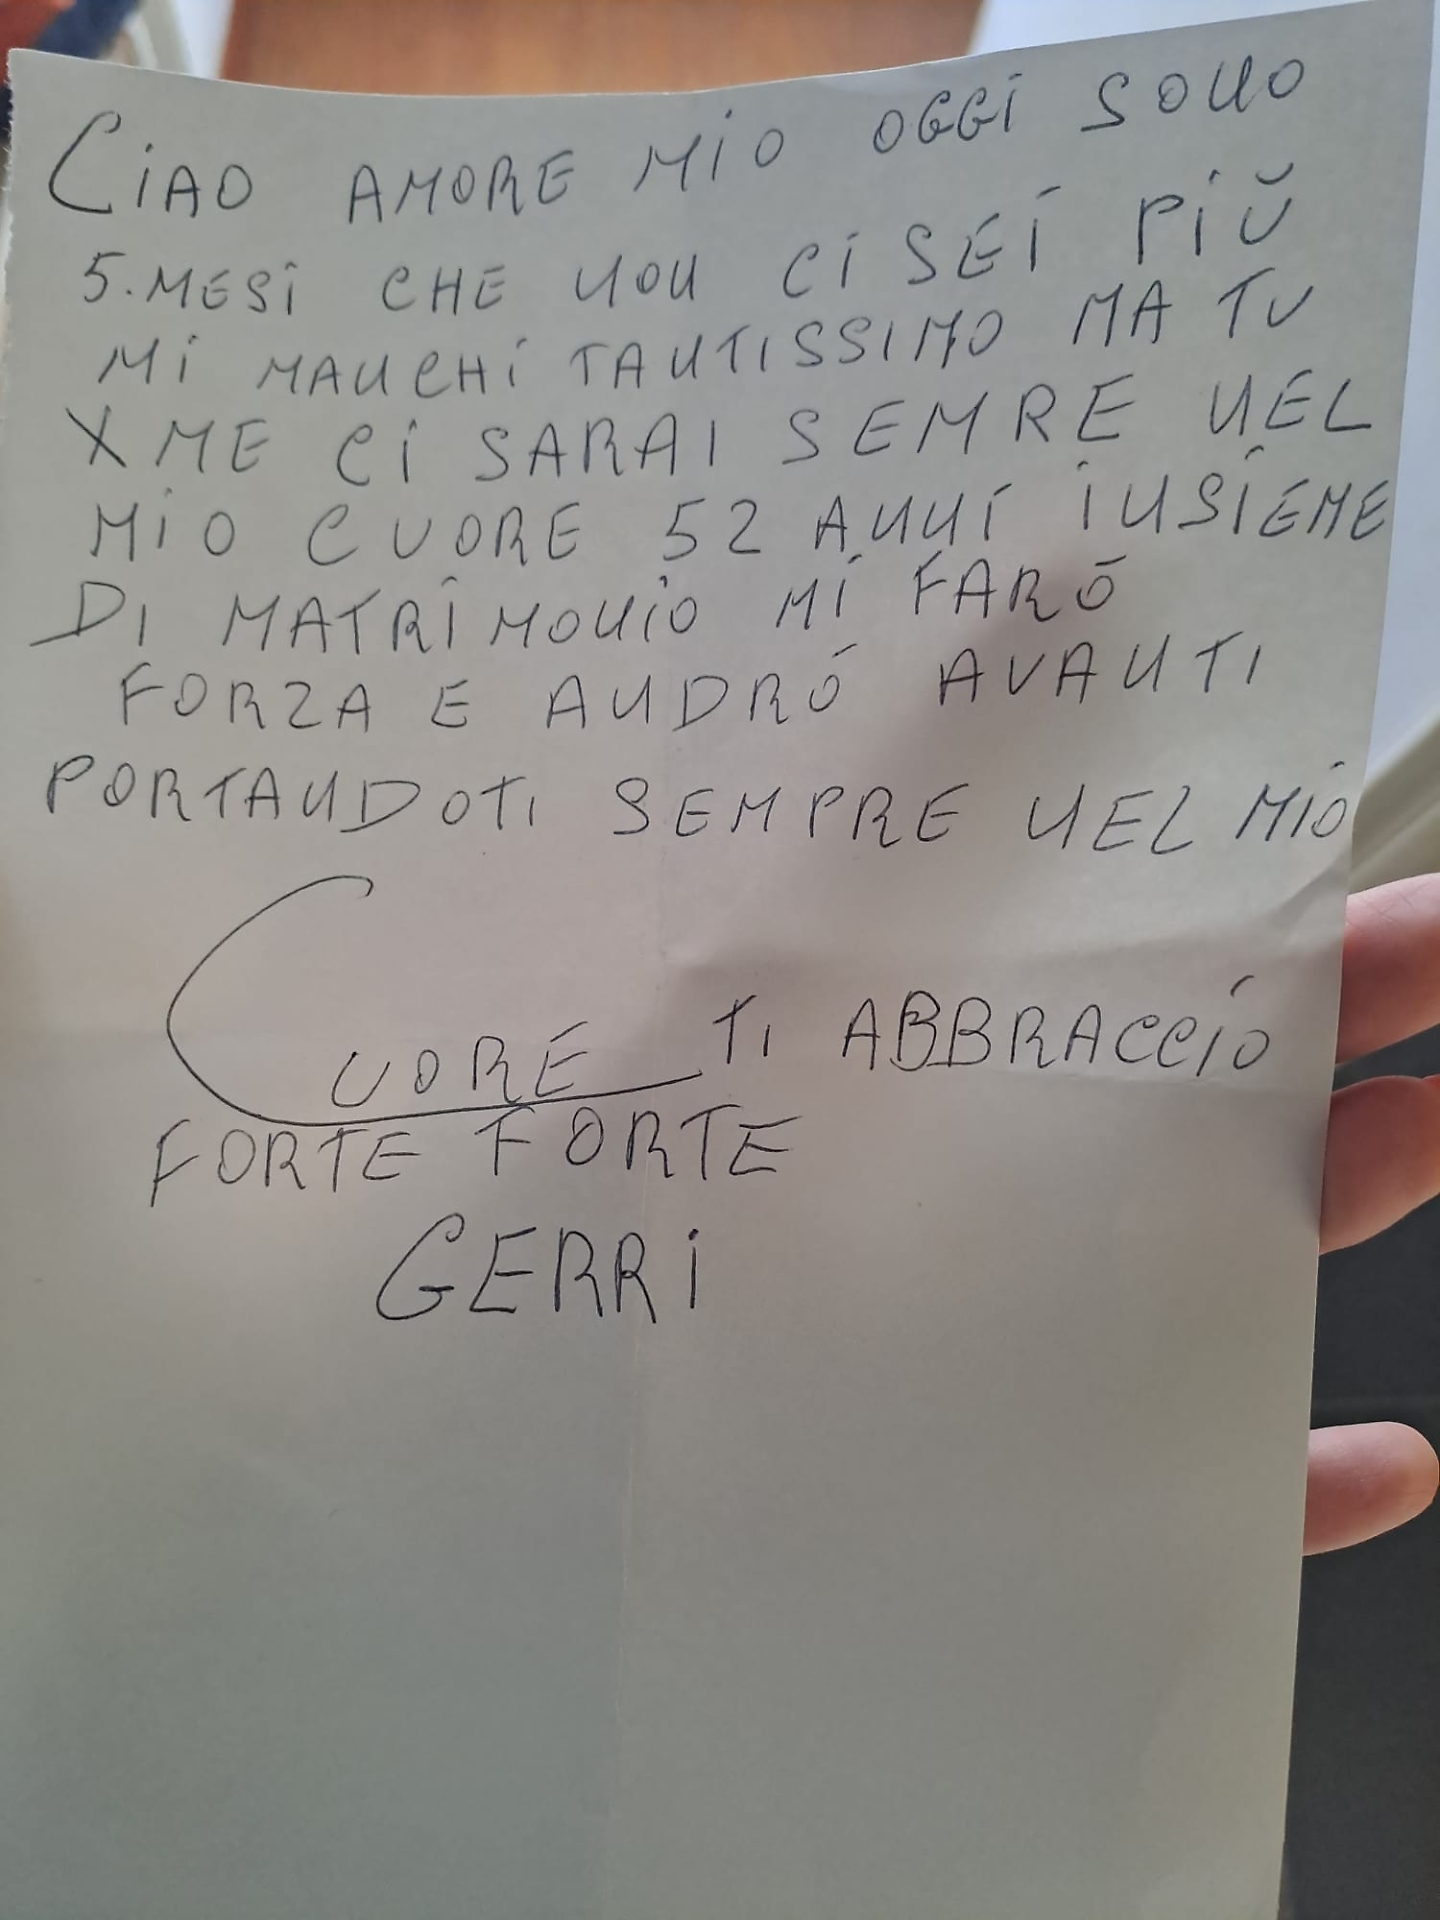 CIAO AMORE MIO OGGI SONO
5.MESI CHE NON CI SEI PIÙ
MI MANCHI TANTISSIMO MA TU
X ME CI SARAI SEMRE NEL
MIO CUORE 52 ANNI INSIEME
DI MATRIMONIO MI FARÓ
FORZA E ANDRÓ AVANTI
PORTANDOTI SEMPRE NEL MIO
CUORE TI ABBRACCIO
FORTE FORTE
GERRI